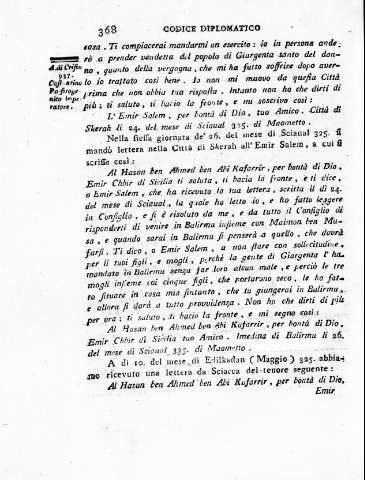 368 CODICE DIPLOMATICO
cosa. Ti compiacerai mandarmi un esercito: io in persona ande
rò a prender vendetta del popolo di Giurgenta santo del dan-
no, quanto della vergogna, che mi ha fatto soffrire dopo aver-
lo io trattato così bene. Io non mi muovo da questa Città
prima che non abbia tua risposta. Intanto non ho che dirti di
più; ti saluto, ti bacio la fronte, e mi soscrivo così:
A. di Cristo
937.
Costantino
Porfiroge-
nito Impe-
ratore.
L' Emir Salem, per bontà di Dio, tuo Amico. Città di
Skerah li 24. del mese di Sciaual 325. di Maometto.
Nella stessa giornata de' 26. del mese di Sciaual 325. si
mandò lettera nella Città di Skerah all' Emir Salem, a cui si
scrisse così:
Al Hasan ben Ahmed ben Abi Kafarrir, per bontà di Dio,
Emir Chbir di Sicilia ti saluta, ti bacia la fronte, e ti dice,
o Emir Salem, che ha ricevuto la tua lettera, scritta il dì 24.
del mese di Sciaual, la quale ho letto io, e ho fatto leggere
in Consiglio, e si è risoluto da me, e da tutto il Consiglio di
risponderti di venire in Balirmu insieme con Maimon ben Mu-
sa, e quando sarai in Balirmu si penserà a quello, che dovrà
farsi. Ti dico, o Emir Salem, a non stare con sollecitudine,
per li tuoi figli, e mogli, perchè la gente di Giargenta l' ha
mandato in Balirmu senza far loro alcun male, e perciò le tre
mogli insieme coi cinque figli, che portarono seco, le ho fat-
to situare in casa mia sintanto, che tu giungerai in Balirmu,
e allora si darà a tutto provvidenza. Non ho che dirti di più
per ora; ti saluto, ti bacio la fronte, e mi segno così:
Al Hasan ben Ahmed ben Abi Kafarrir, per bontà di Dio,
Emir Chbir di Sicilia tuo Amico. Imedina di Balirmu li 26.
del mese di Sciaual 325. di Maometto.
A dì 10. del mese di Edilkadan (Maggio) 325. abbia-
mo ricevuto una lettera da Sciacca del tenore seguente:
Al Hasan ben Ahmed ben Abi Kafarrir, per bontà di Dio,
Emir